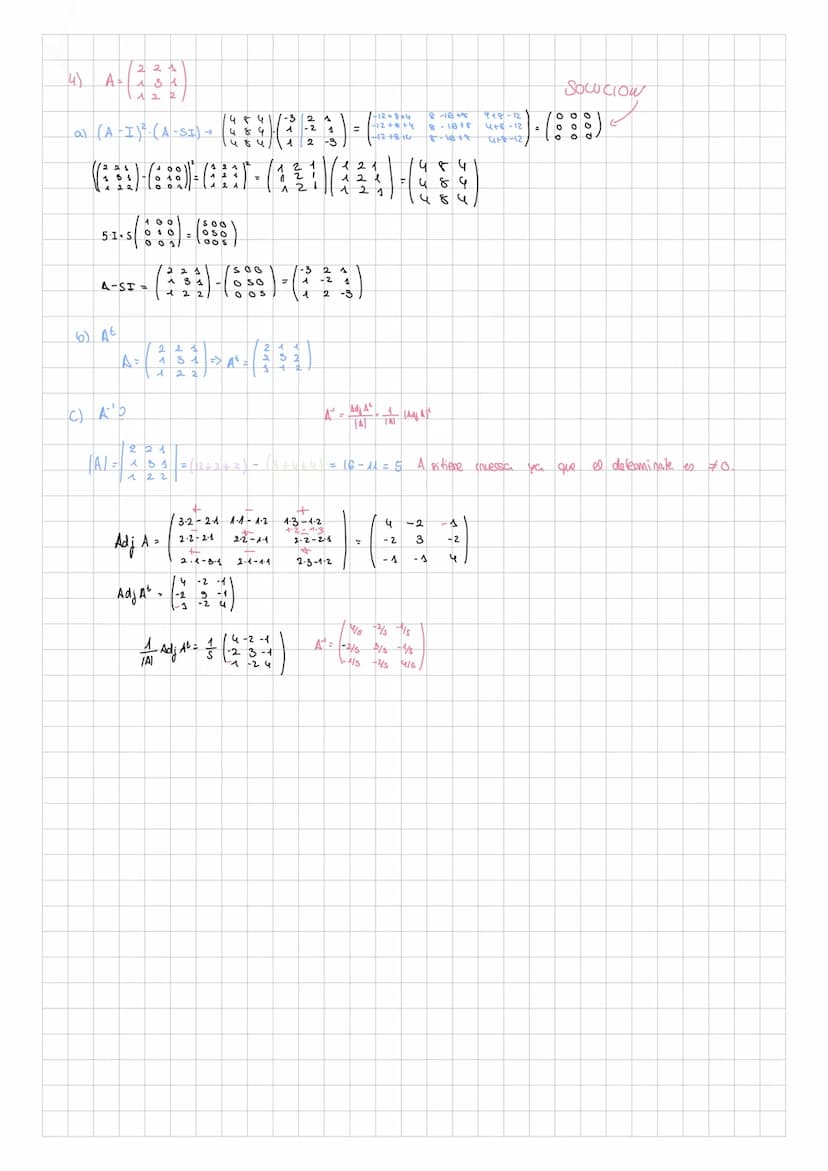 4) A = ( 2 2 1 / 1 3 1 / 1 2 2 )
SOLUCION
a) (A - I)² · (A - 5I) → ( 4 8 4 / 4 8 4 / 4 8 4 ) · ( -3 2 1 / 1 -2 1 / 1 2 -3 ) = ( -12+8+4 8-16+8 4+8-12 / -12+8+4 8-16+8 4+8-12 / -12+8+4 8-16+8 4+8-12 ) = ( 0 0 0 / 0 0 0 / 0 0 0 )
(( 2 2 1 / 1 3 1 / 1 2 2 ) - ( 1 0 0 / 0 1 0 / 0 0 1 ))² = ( 1 2 1 / 1 2 1 / 1 2 1 )² = ( 1 2 1 / 1 2 1 / 1 2 1 ) ( 1 2 1 / 1 2 1 / 1 2 1 ) = ( 4 8 4 / 4 8 4 / 4 8 4 )
5·I = 5 ( 1 0 0 / 0 1 0 / 0 0 1 ) = ( 5 0 0 / 0 5 0 / 0 0 5 )
A - 5I = ( 2 2 1 / 1 3 1 / 1 2 2 ) - ( 5 0 0 / 0 5 0 / 0 0 5 ) = ( -3 2 1 / 1 -2 1 / 1 2 -3 )
b) Aᵗ
A = ( 2 2 1 / 1 3 1 / 1 2 2 ) => Aᵗ = ( 2 1 1 / 2 3 2 / 1 1 2 )
c) A⁻¹? A⁻¹ = Adj Aᵗ / |A| = 1/|A| (Adj A)ᵗ
|A| = | 2 2 1 / 1 3 1 / 1 2 2 | = (12+2+2) - (3+4+4) = 16 - 11 = 5 A si tiene inversa ya que el determinate es ≠ 0.
Adj A = ( 3·2-2·1 1·1-1·2 1·3-1·2 / 2·2-2·1 2·2-1·1 2·2-2·1 / 2·1-3·1 2·1-1·1 2·3-1·2 ) = ( 4 -2 -1 / -2 3 -2 / -1 -1 4 )
Adj Aᵗ = ( 4 -2 -1 / -2 3 -1 / -1 -2 4 )
1/|A| Adj Aᵗ = 1/5 ( 4 -2 -1 / -2 3 -1 / -1 -2 4 ) A⁻¹ = ( 4/5 -2/5 -1/5 / -2/5 3/5 -1/5 / -1/5 -2/5 4/5 )